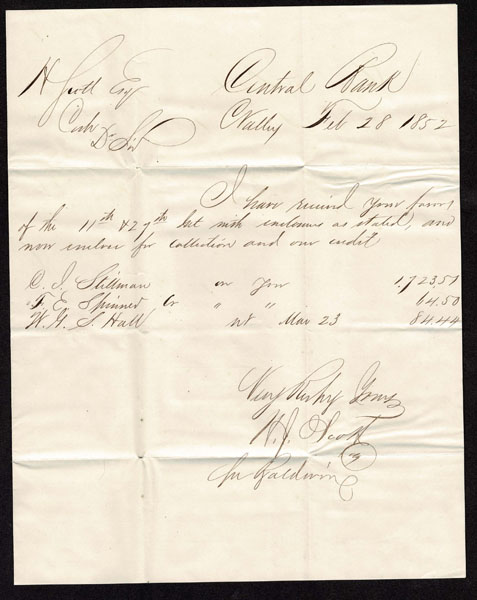 Central Bank
C Valley Feb 28 1852
Esq
Cash
Dr Sir
I have received your favors
of the 11th & 27th inst with enclosures as stated, and
now enclose for collection and our credit
C. J. Stillman on you 1,723.57
F. E. Spinner Cr " " 64.50
W. H. S. Hall nt Mar 23 84.44
Very Resp'y Yours
H. J. Scott
Baldwin